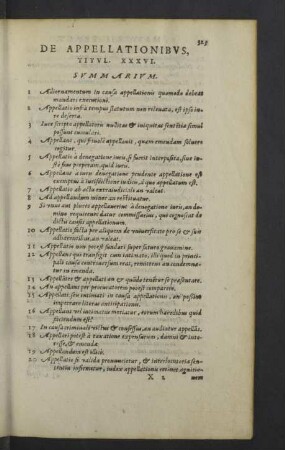 325
DE APPELLATIONIBVS,
TITVL. XXXVI.
SVMMARIVM.
1 Alternamentum in causa appellationis quomodo debeat
mandari executioni.
2 Appellatio infra tempus statutum non releuata, est ipso iu-
re deserta.
3 Iure scripto appellatoris nullitas & iniquitas sententiæ simul
possunt cumulari.
4 Appellans, qui friuole appellauit, quam emendam soluere
cogitur.
5 Appellatio à denegatione iuris, si fuerit interposita, siue iu-
5 Appellans à iuris denegatione pendente appellatione est
exemptus à iurisdictione iudicis, à quo appellatum est.
7 Appellatio ab actu extraiudiciali an valeat.
8 Ad appellandum minor an restituatur.
9 Si vnus aut plures appellauerint à denegatione iuris, an do-
minus requirere datur commissarius, qui cognoscat de
dicta causa appellationum.
10 Appellatio facta per aliquem de vniuersitate pro se & sibi
adhærentibus, an valeat.
11 Appellatio non potest fundari super futuro grauamine.
12 Appellans qui transigit cum intimato, nisi quod in princi-
pali causa contineatur, remittitur an condemna-
tur in emenda.
13 Appellare & appellati an & quando tendetur se præsentare.
14 An appellans per procuratorem possit comparere.
15 Appellans seu intimatus in causa appellationis, an possint
impetrare literas anticipationis.
16 Appellans vel intimatus moriatur, eorum hæredibus quid
faciendum est?
17 In causa criminali victus & confessus, an auditur appellans.
18 Appellari potest à taxatione expensarum, damni & inte-
resse, & emenda.
19 Appellandum est illicò.
20 Appellatio si valida pronuncietur, & interlocutoria sen-
tentia infirmetur, iudex appellationis retinet cognitio-
X 2 nem